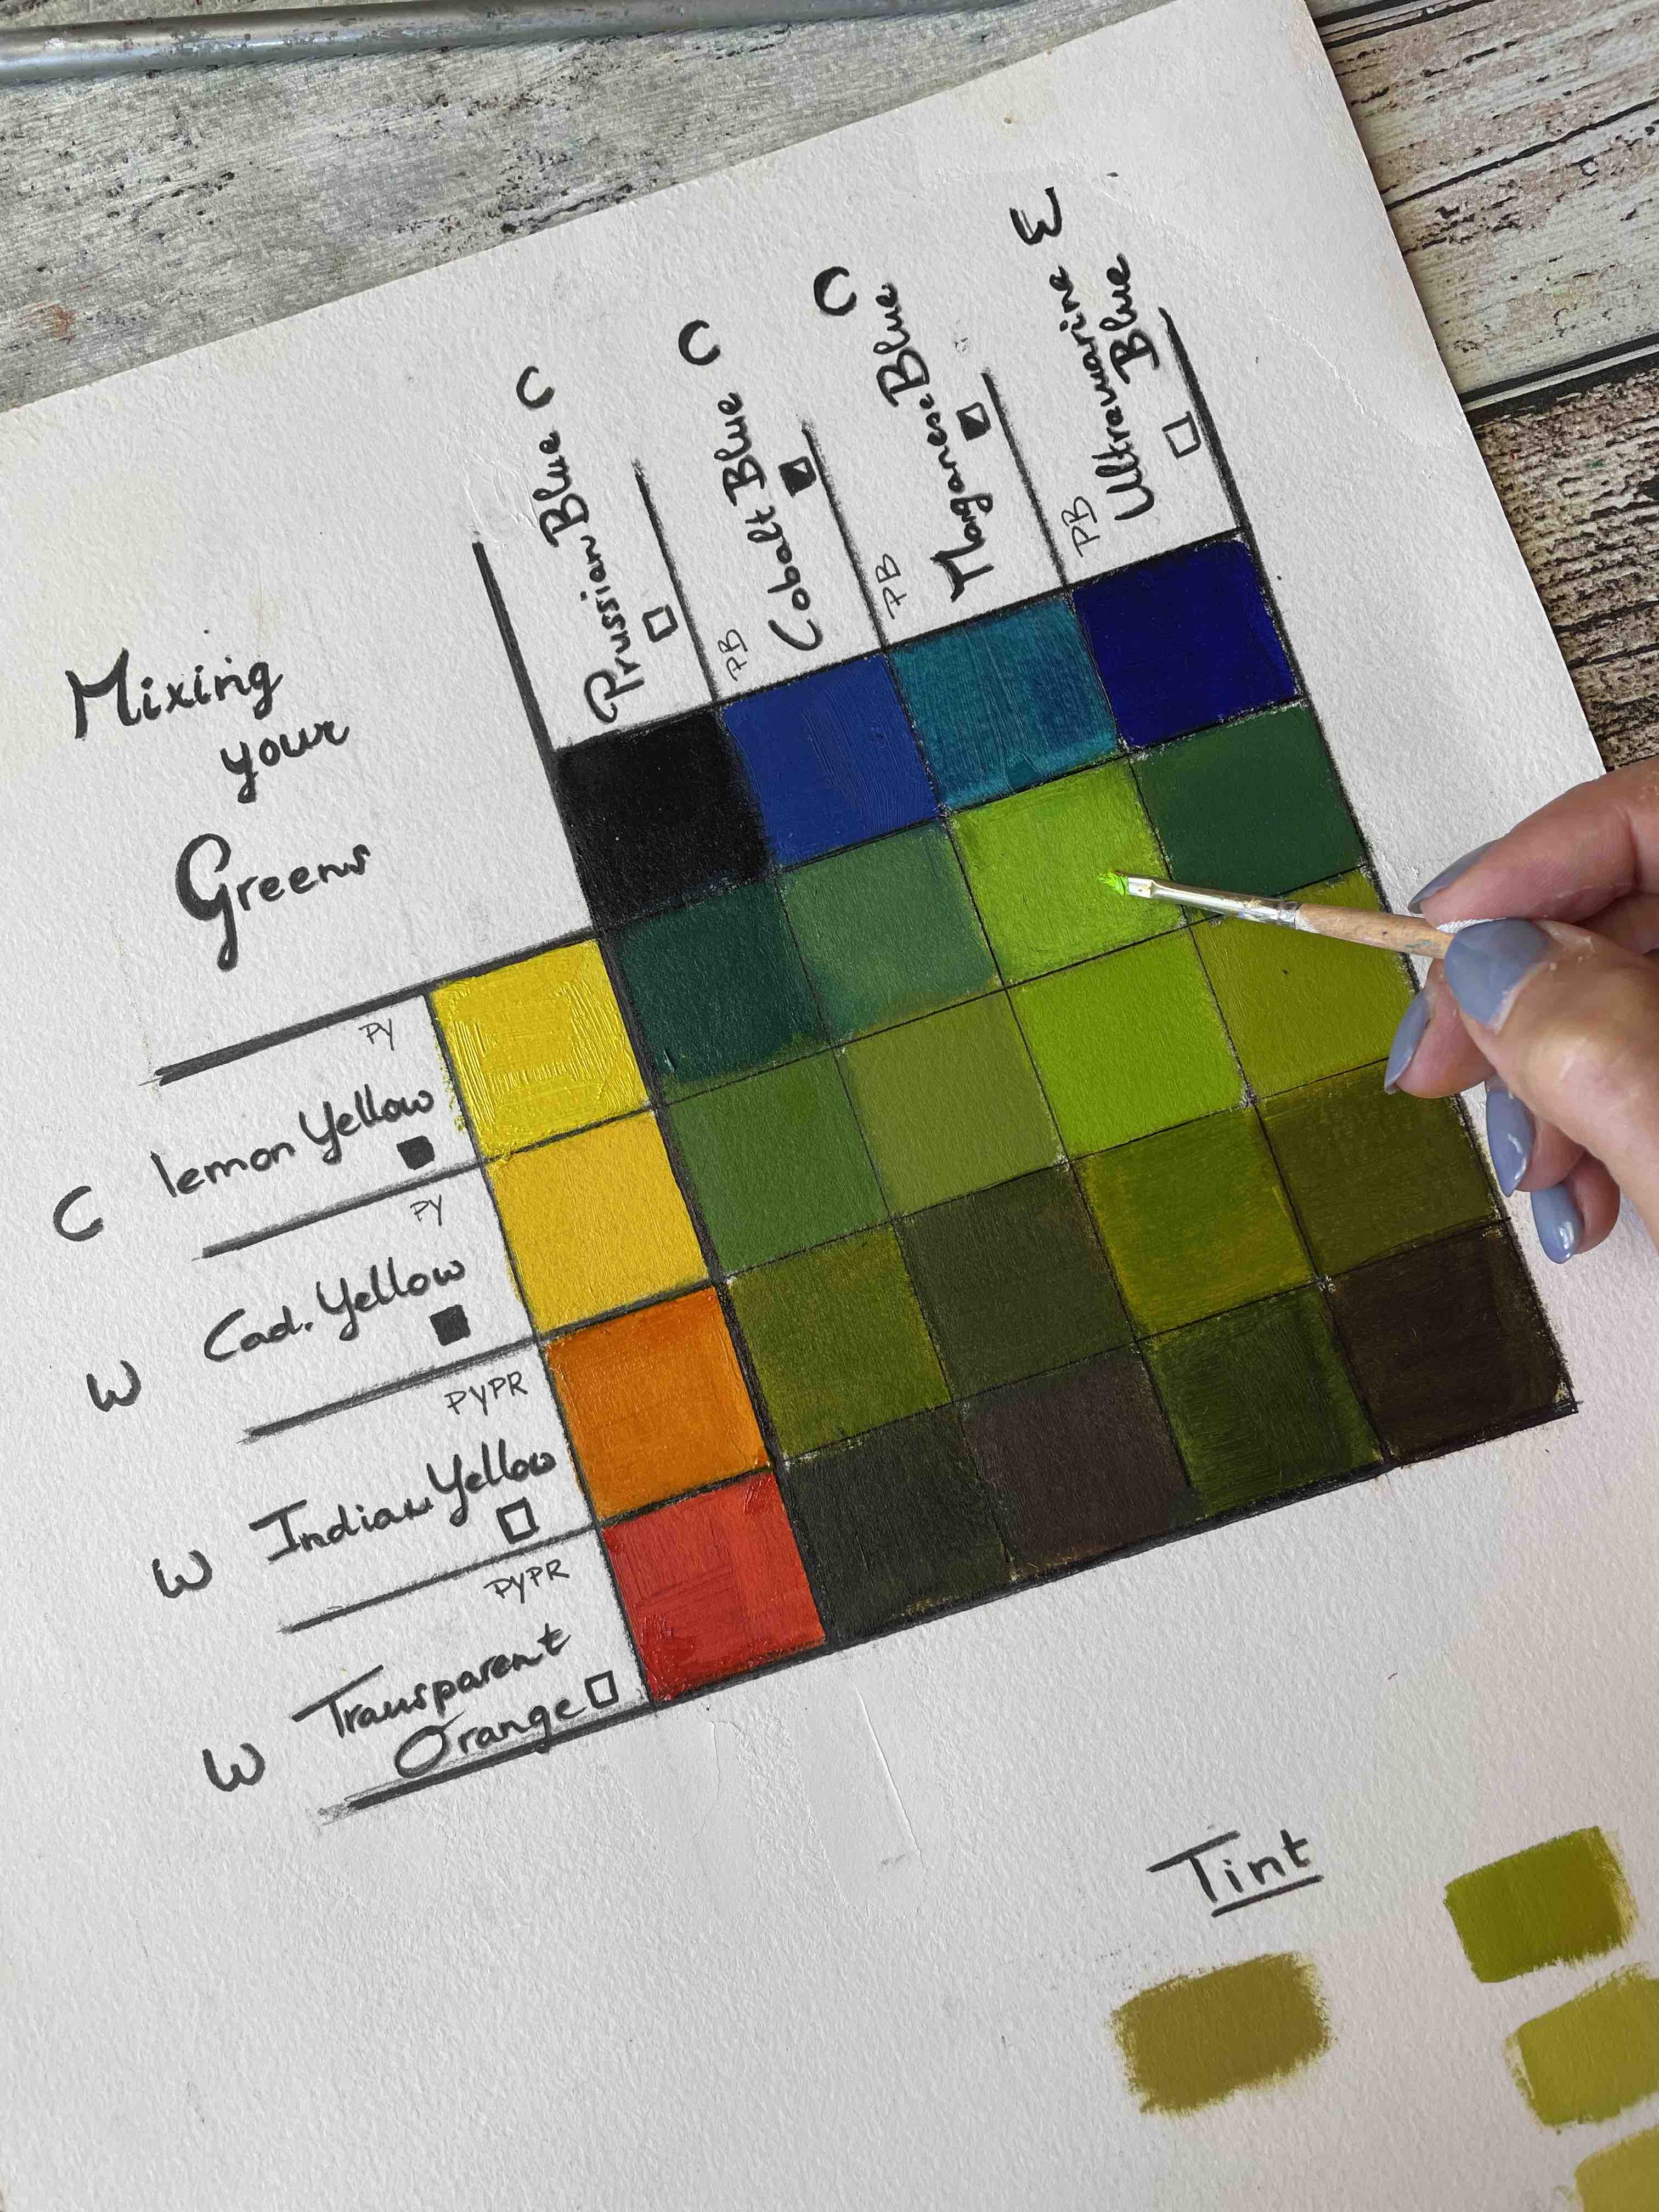 Mixing
your
Greens
Prussian Blue C
PB
Cobalt Blue C
PB
Manganese Blue C
PB
Ultramarine W
Blue
PY
C lemon Yellow
PY
W Cad. Yellow
PYPR
W Indian Yellow
PYPR
W Transparent
Orange
Tint